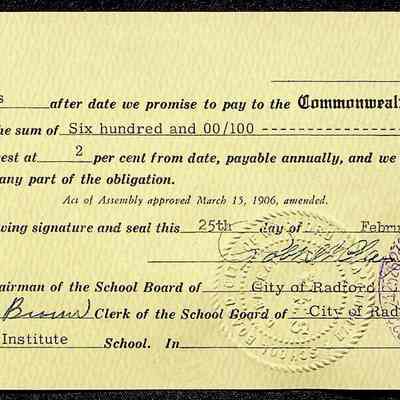 after date we promise to pay to the Commonweal
he sum of Six hundred and 00/100 --------------
est at 2 per cent from date, payable annually, and we
any part of the obligation.
Act of Assembly approved March 15, 1906, amended.
wing signature and seal this 25th day of Febru
airman of the School Board of City of Radford
Clerk of the School Board of City of Rad
Institute School. In